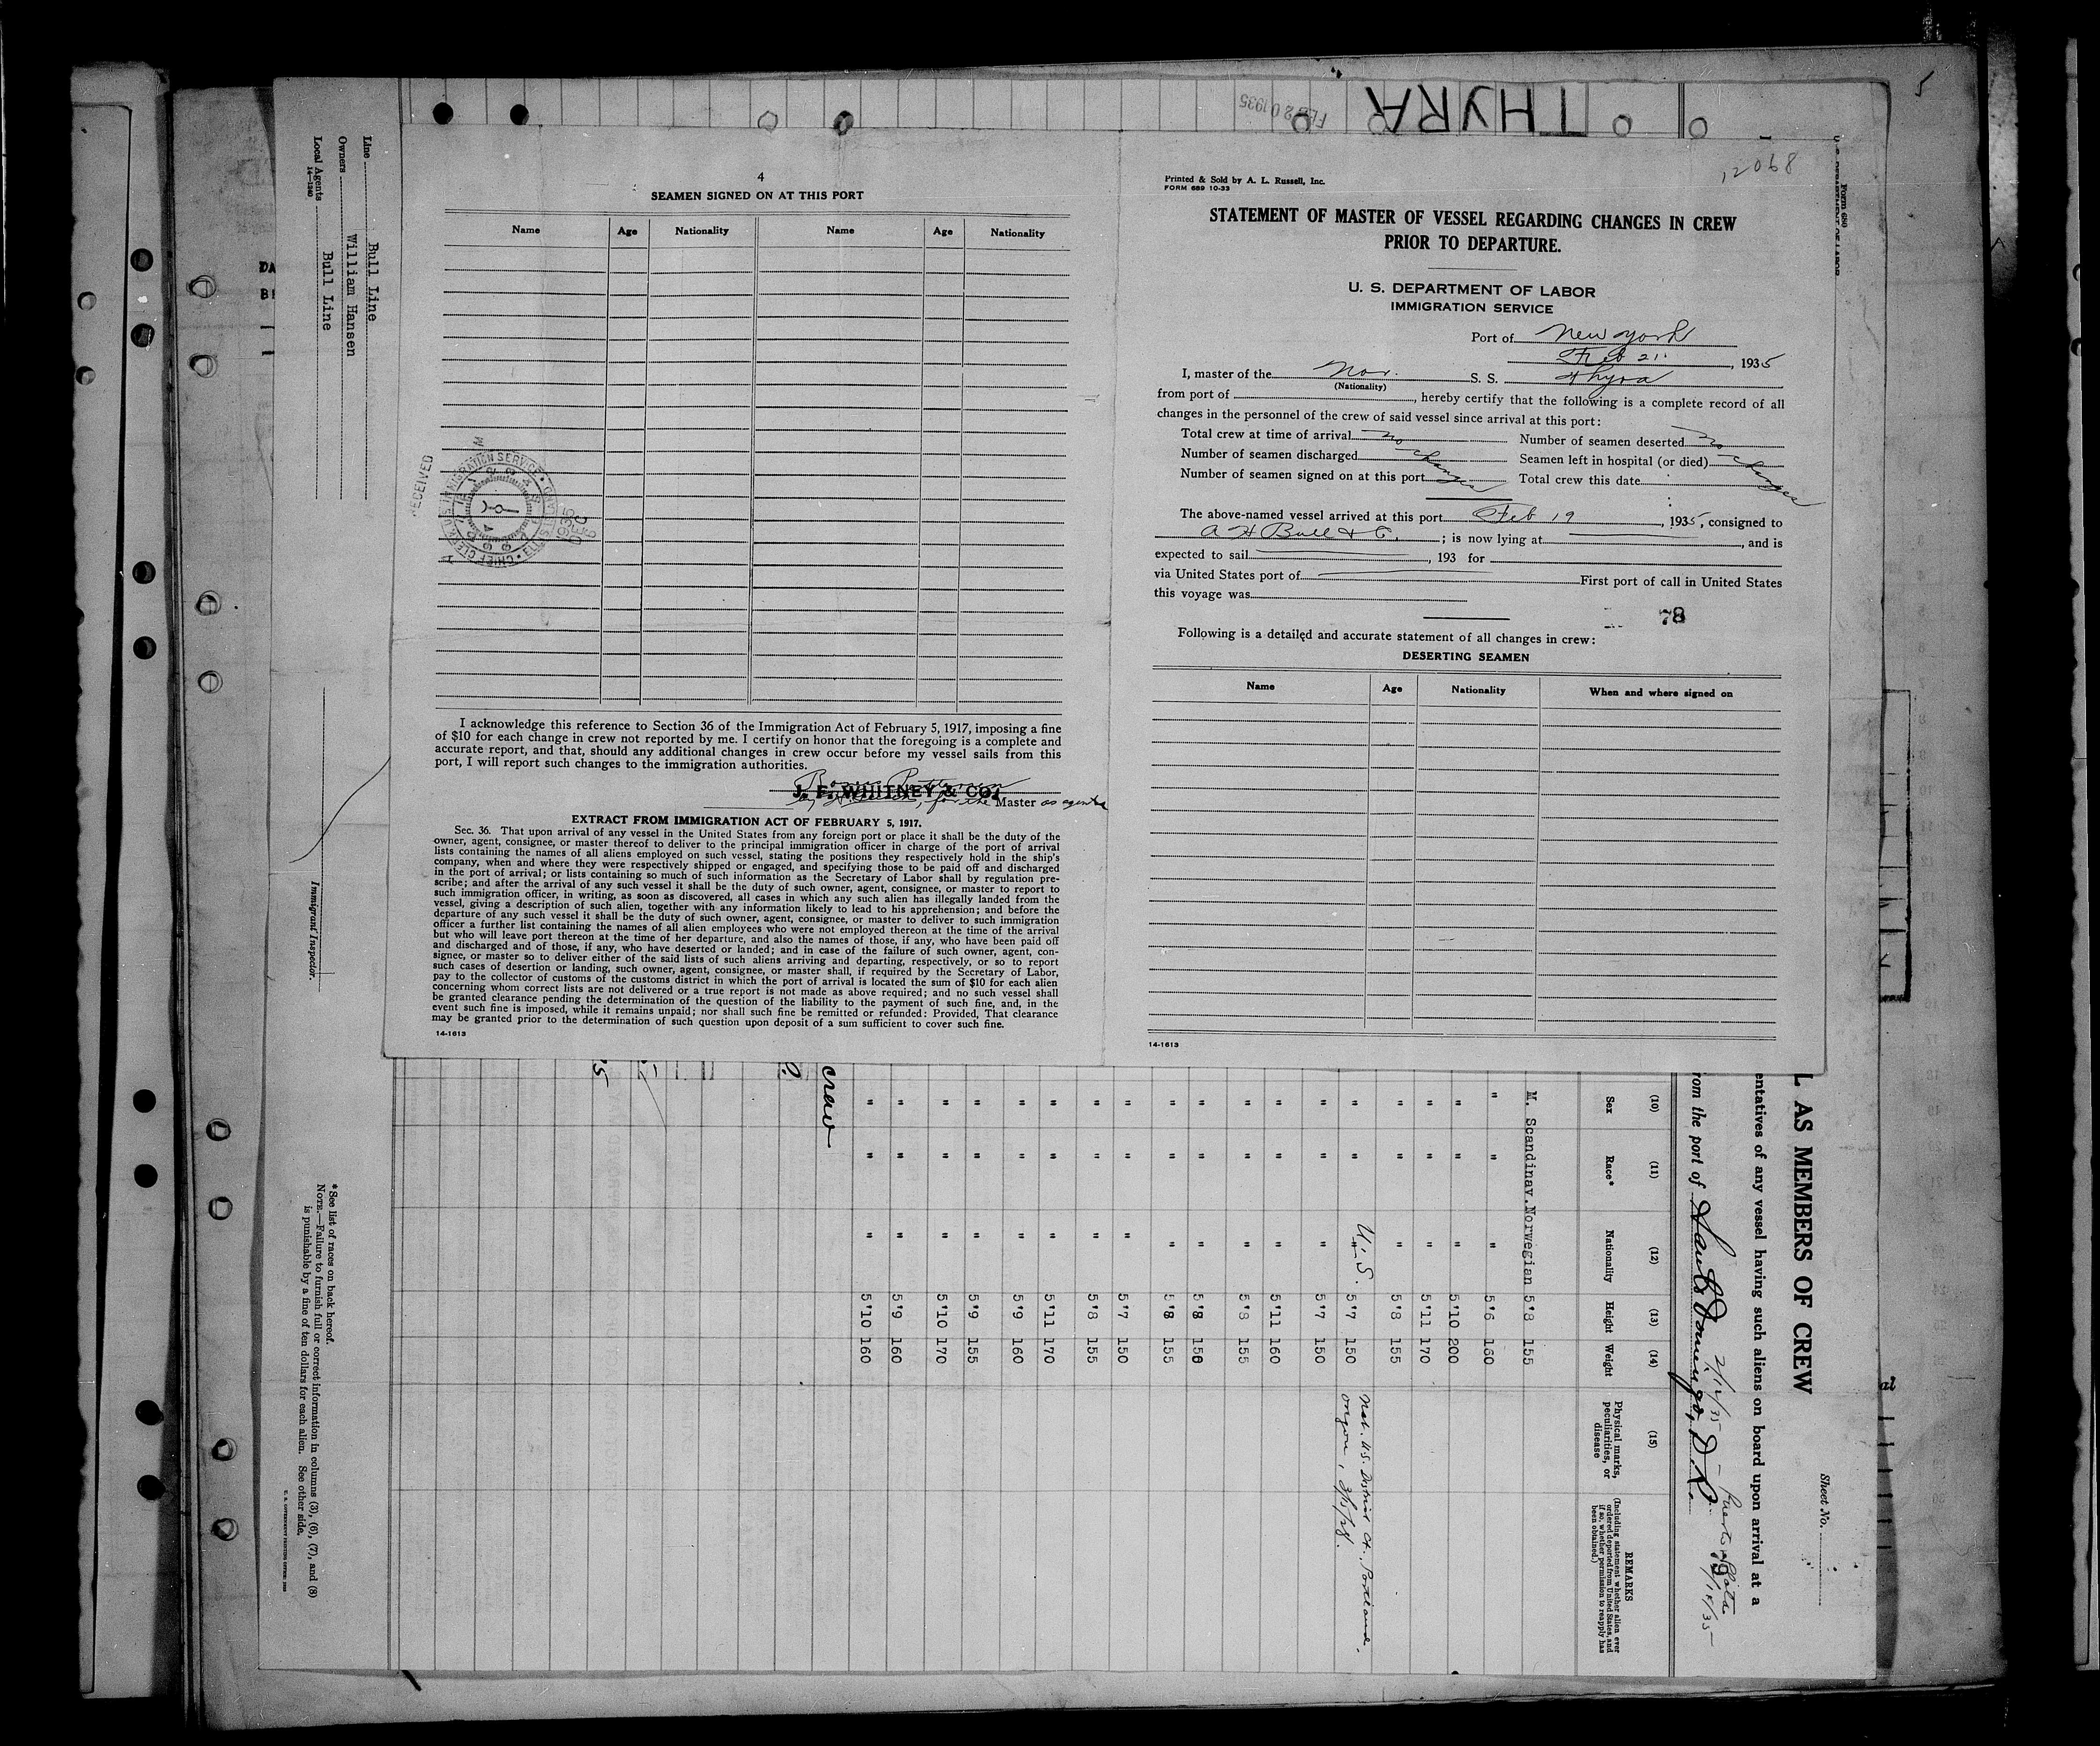 5
THYRA
FEB 20 1935
12068
4
SEAMEN SIGNED ON AT THIS PORT
Name Age Nationality Name Age Nationality
RECEIVED
I acknowledge this reference to Section 36 of the Immigration Act of February 5, 1917, imposing a fine
of $10 for each change in crew not reported by me. I certify on honor that the foregoing is a complete and
accurate report, and that, should any additional changes in crew occur before my vessel sails from this
port, I will report such changes to the immigration authorities.
J. F. WHITNEY & CO.
for the Master as agents
EXTRACT FROM IMMIGRATION ACT OF FEBRUARY 5, 1917.
Sec. 36. That upon arrival of any vessel in the United States from any foreign port or place it shall be the duty of the
owner, agent, consignee, or master thereof to deliver to the principal immigration officer in charge of the port of arrival
lists containing the names of all aliens employed on such vessel, stating the positions they respectively hold in the ship's
company, when and where they were respectively shipped or engaged, and specifying those to be paid off and discharged
in the port of arrival; or lists containing so much of such information as the Secretary of Labor shall by regulation pre-
scribe; and after the arrival of any such vessel it shall be the duty of such owner, agent, consignee, or master to report to
such immigration officer, in writing, as soon as discovered, all cases in which any such alien has illegally landed from the
vessel, giving a description of such alien, together with any information likely to lead to his apprehension; and before the
departure of any such vessel it shall be the duty of such owner, agent, consignee, or master to deliver to such immigration
officer a further list containing the names of all alien employees who were not employed thereon at the time of the arrival
but who will leave port thereon at the time of her departure, and also the names of those, if any, who have been paid off
and discharged and of those, if any, who have deserted or landed; and in case of the failure of such owner, agent, con-
signee, or master so to deliver either of the said lists of such aliens arriving and departing, respectively, or so to report
such cases of desertion or landing, such owner, agent, consignee, or master shall, if required by the Secretary of Labor,
pay to the collector of customs of the customs district in which the port of arrival is located the sum of $10 for each alien
concerning whom correct lists are not delivered or a true report is not made as above required; and no such vessel shall
be granted clearance pending the determination of the question of the liability to the payment of such fine, and, in the
event such fine is imposed, while it remains unpaid; nor shall such fine be remitted or refunded: Provided, That clearance
may be granted prior to the determination of such question upon deposit of a sum sufficient to cover such fine.
14-1613
Printed & Sold by A. L. Russell, Inc.
FORM 689 10-33
STATEMENT OF MASTER OF VESSEL REGARDING CHANGES IN CREW
PRIOR TO DEPARTURE.
U. S. DEPARTMENT OF LABOR
IMMIGRATION SERVICE
Port of New York
Feb 21, 1935
I, master of the Nor. S. S. Thyra
(Nationality)
from port of , hereby certify that the following is a complete record of all
changes in the personnel of the crew of said vessel since arrival at this port:
Total crew at time of arrival no Number of seamen deserted no
Number of seamen discharged changes Seamen left in hospital (or died) changes
Number of seamen signed on at this port Total crew this date
The above-named vessel arrived at this port Feb 19, 1935, consigned to
A H Bull & Co. ; is now lying at , and is
expected to sail , 193 for
via United States port of First port of call in United States
this voyage was
78
Following is a detailed and accurate statement of all changes in crew:
DESERTING SEAMEN
Name Age Nationality When and where signed on
14-1613
Line Bull Line
Owners William Hansen
Local Agents Bull Line
14-1240
Immigrant Inspector.
*See list of races on back hereof.
NOTE.—Failure to furnish full or correct information in columns (3), (6), (7), and (8)
is punishable by a fine of ten dollars for each alien. See other side.
Form 680
Sheet No.
L AS MEMBERS OF CREW
entatives of any vessel having such aliens on board upon arrival at a
rom the port of Santo Domingo, D.R.
2/12/35 - Puerto Plata
(10) (11) (12) (13) (14) (15)
Sex Race* Nationality Height Weight Physical marks, peculiarities, or disease REMARKS
(Including statement whether alien ever
ordered deported from United States, and
if so, whether permission to reapply has
been obtained.)
M. Scandinav. Norwegian 5'8 155
" " " 5'6 160
" " " 5'10 200
" " " 5'11 170
" " " 5'8 155
" " U.S. 5'7 150 Nat. U.S. District Ct., Portland,
Oregon,
" " " 5'7 150
" " " 5'11 160
" " " 5'8 155
" " " 5'8 150
" " " 5'8 155
" " " 5'7 150
" " " 5'8 155
" " " 5'11 170
" " " 5'9 160
" " " 5'9 155
" " " 5'10 170
" " " 5'9 160
" " " 5'10 160
crew